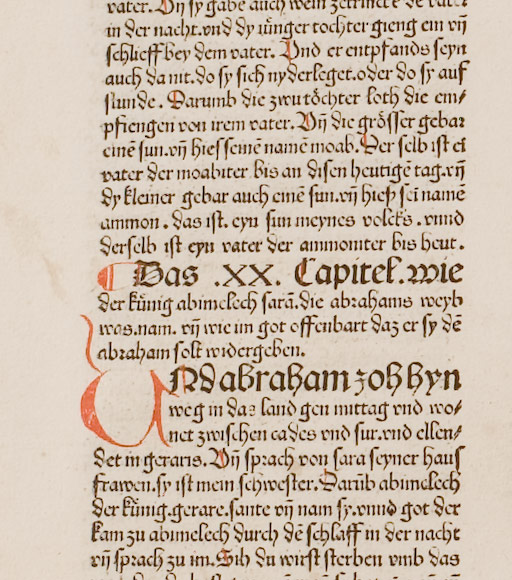 vater. Vn̄ sy gabē auch wein zetrincken dē vater
in der nacht. vnd dy iu̇nger tochter gieng ein vn̄
schlieff bey dem vater. Vnd er entpfands seyn
auch da nit. do sy sich nyderleget. oder do sy auf
stunde. Darumb die zwu to̊chter loth die em⸗
pfiengen von irem vater. Vn̄ die gro̊sser gebar
einē sun. vn̄ hiess seinē namē moab. Der selb ist ei
vater der moabiter bis an disen heutigē tag. vn̄
dy kleiner gebar auch einē sun. vn̄ hieß sei namē
ammon. das ist. eyn sun meynes volcks. vnnd
derselb ist eyn vater der ammoniter bis heut.
Das .XX. Capitel. wie
der ku̇nig abimelech sarā. die abrahams weyb
was. nam. vn̄ wie im got offenbart daz er sy dē
abraham solt widergeben.
VNd abraham zoh hyn
weg in das land gen mittag vnd wo⸗
net zwischen cades vnd sur. vnd ellen⸗
det in geraris. Vn̄ sprach von sara seyner haus
frawen. sy ist mein schwester. Darūb abimelech
der ku̇nig. gerare. sante vn̄ nam sy. vnnd got der
kam zu abimelech durch dē schlaff in der nacht
vn̄ sprach zu im. Sih du wirst sterben vmb das